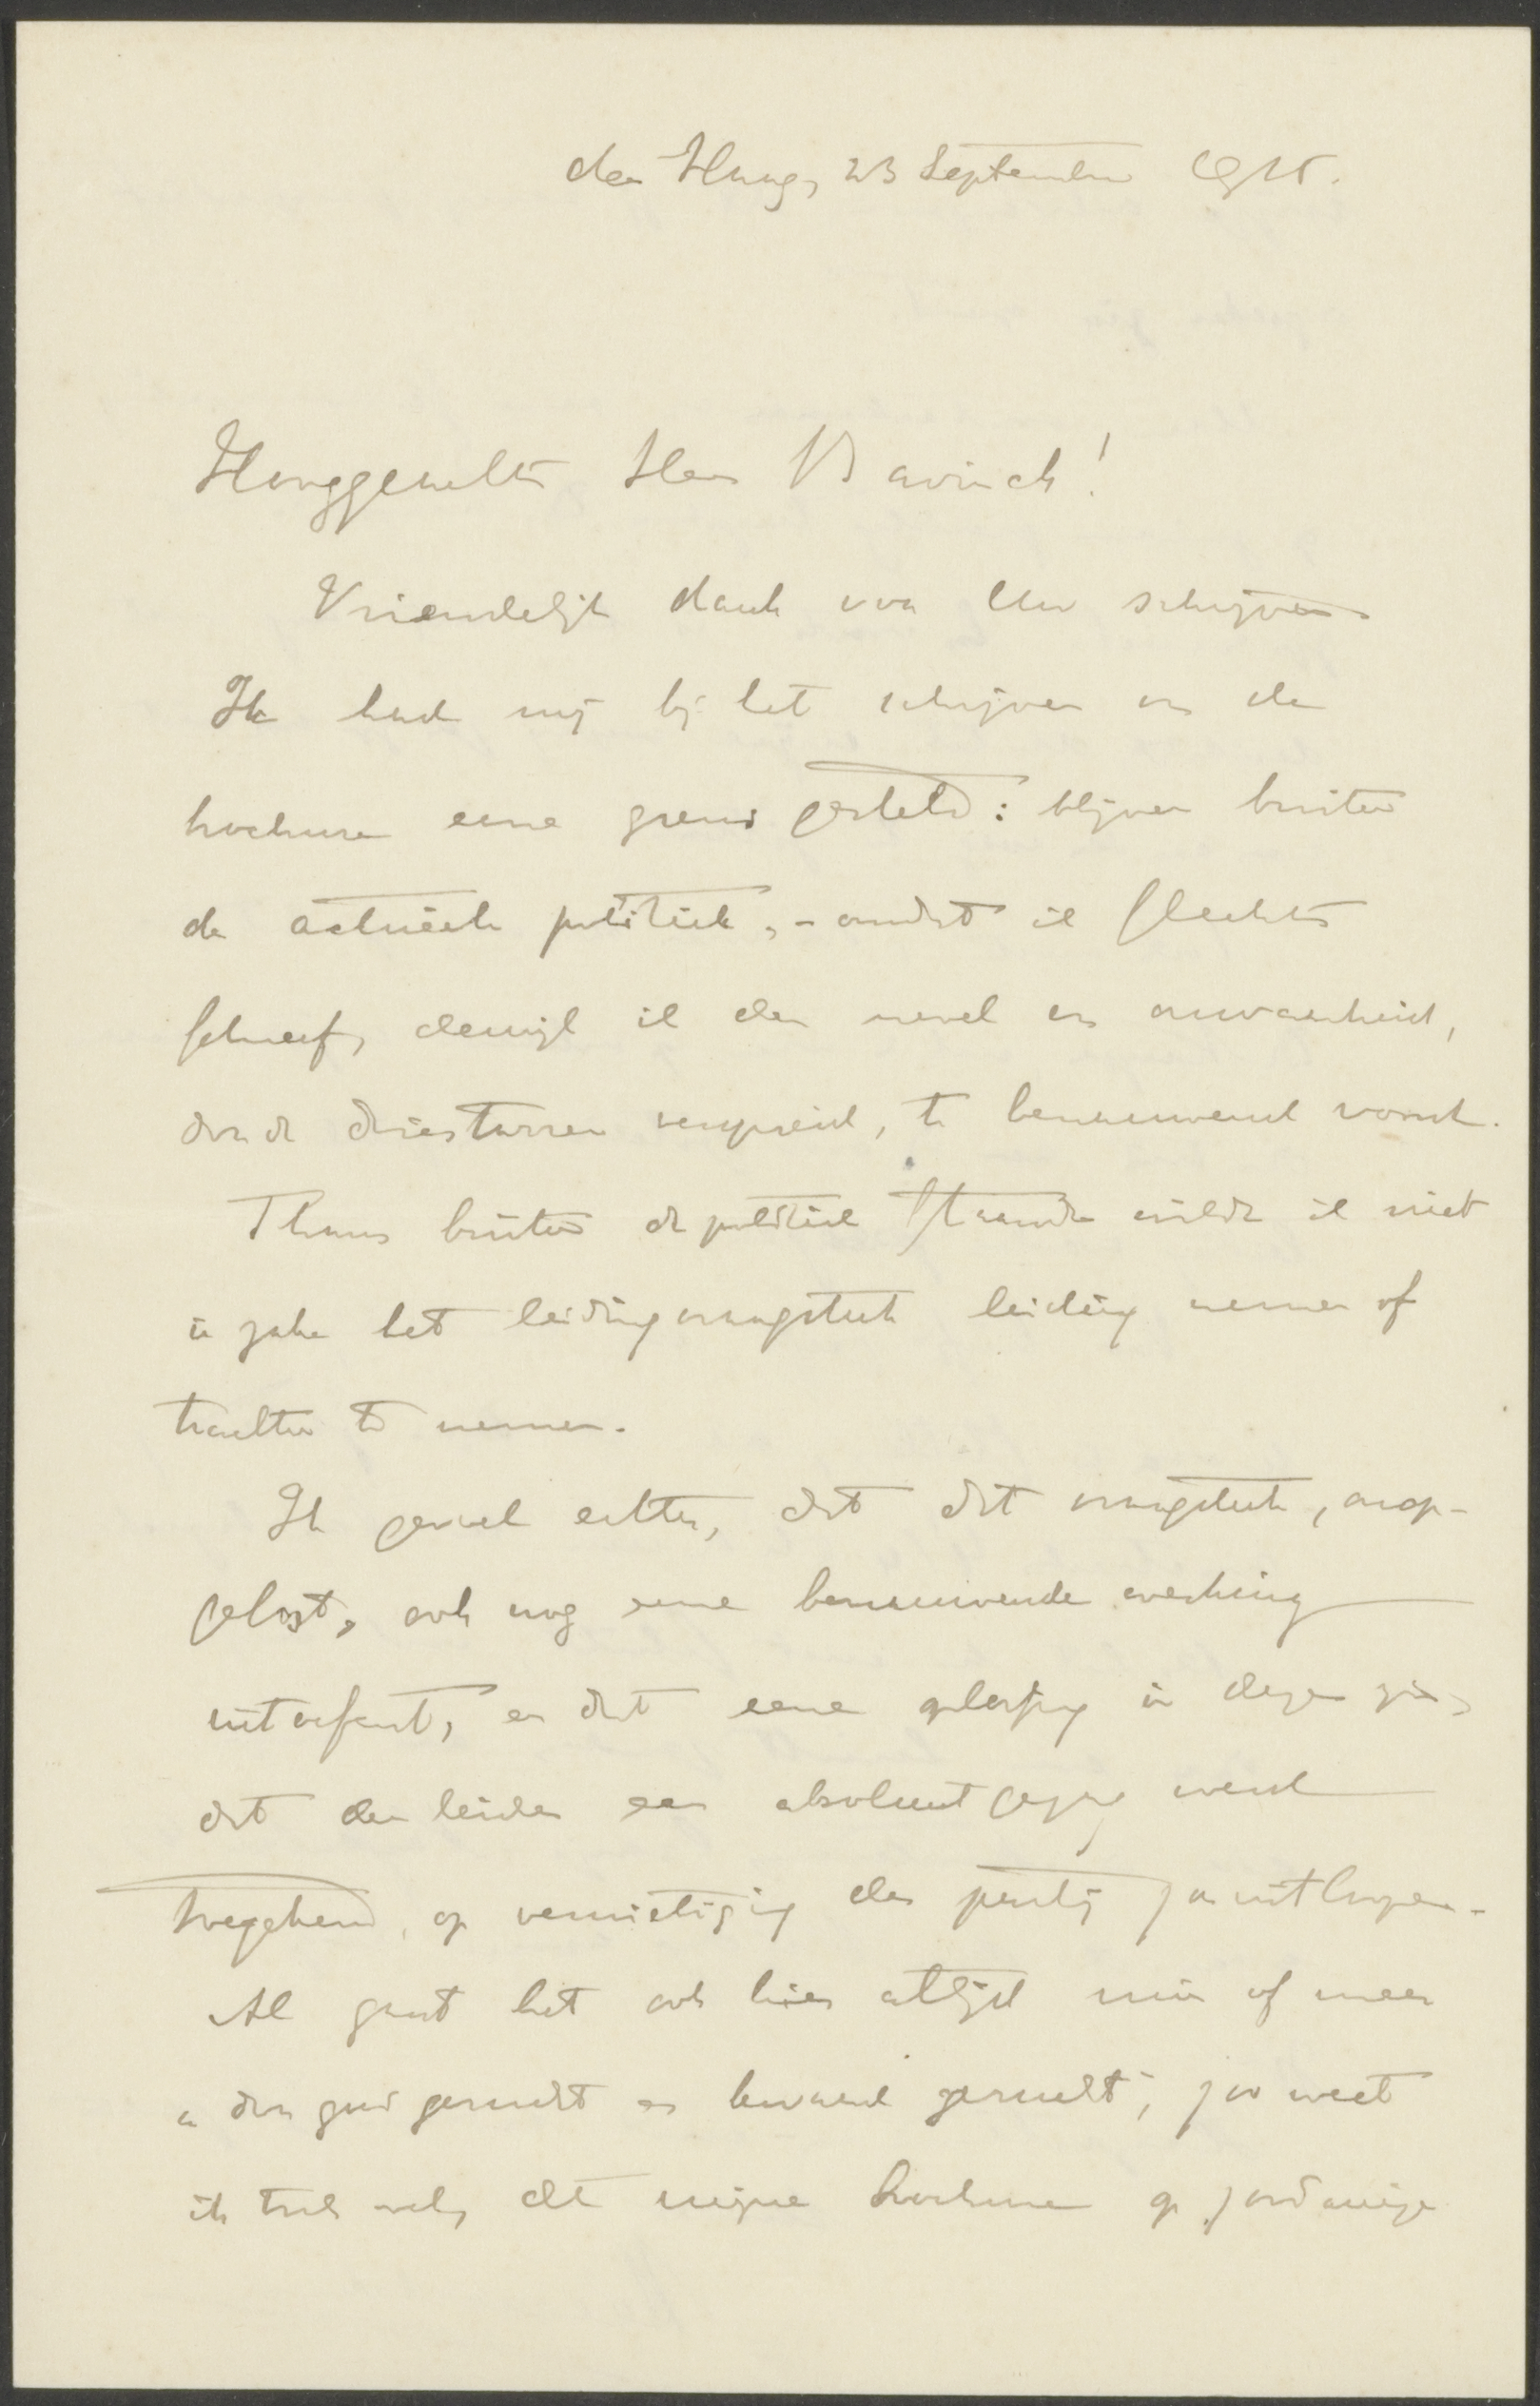 den Haag, 23 September 1915.
Hooggeachte Heer Bavinck!
Vriendelijk dank voor Uw schrijven.
Ik had mij bij het schrijven van de
brochure eene grens gesteld: blijven buiten
de actueele politiek, - omdat ik slechts
schreef, dewijl ik den nevel van onwaarheid,
door de driestarren verspreid, te benauwend vond.
Thans buiten de politiek staande wilde ik niet
in zake het leidingvraagstuk leiding nemen of
trachten te nemen.
Ik gevoel echter, dat dit vraagstuk, onop-
gelost, ook nog eene benauwende werking
uitoefent, en dat eene oplossing in dezen zin,
dat den leider een absoluut gezag werd
toegekend, op vernietiging der partij zou uitloopen.
Al gaat het ook hier altijd min of meer
door goed gerucht en kwaad gerucht, zoo weet
ik toch wel, dat mijne brochure op zoodanige